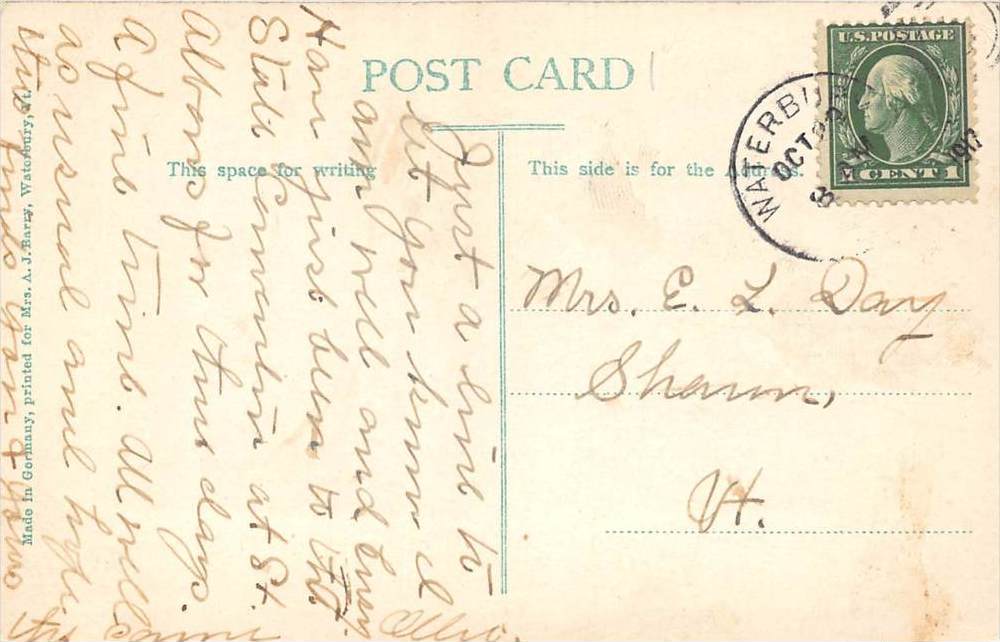 POST CARD
This space for writing
This side is for the Address.
U.S. POSTAGE
1 CENT 1
WATERBURY
OCT
8 AM
191
Mrs. E. L. Day
Sharon,
Vt.
Just a line to
let you know I
am well and busy.
Have just been to
State Convention at St.
Albans for three days.
A fine time. All well
as usual and hope
this finds you &
Made in Germany, printed for Mrs. A. J. Barry, Waterbury, Vt.